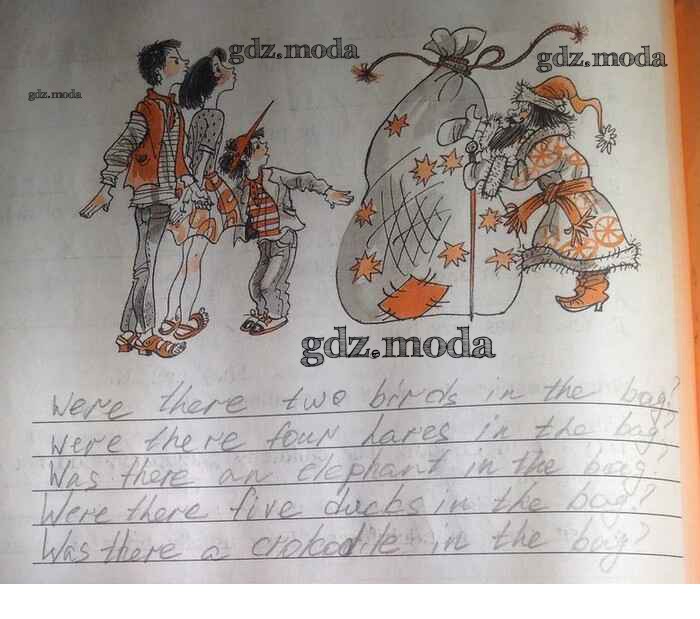 gdz.moda
gdz.moda
gdz.moda
gdz.moda
Were there two birds in the bag?
Were there four hares in the bag?
Was there an elephant in the bag?
Were there five ducks in the bag?
Was there a crokodile in the bag?